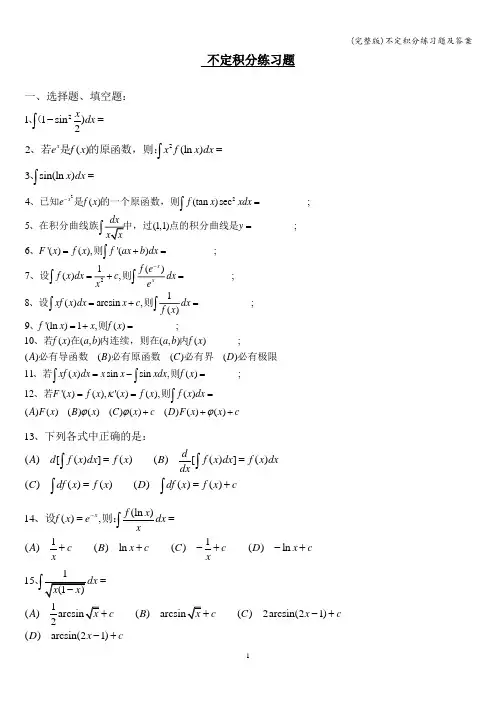 (完整版)不定积分练习题及答案
不定积分练习题
一、选择题、填空题:
1、(1-sin²(x/2))dx =
2、若eˣ是f(x)的原函数，则:∫x²f(ln x)dx =
3、∫sin(ln x)dx =
4、已知e^(-x²)是f(x)的一个原函数，则∫f(tan x)sec²xdx = ________;
5、在积分曲线族∫dx/(x√x)中，过(1,1)点的积分曲线是y = ________;
6、F'(x) = f(x),则∫f'(ax+b)dx = ________;
7、设∫f(x)dx = 1/x² + c,则∫f(e⁻ˣ)/eˣ dx = ________;
8、设∫xf(x)dx = arcsin x + c,则∫1/f(x) dx = ________;
9、f'(ln x) = 1 + x,则f(x) = ________;
10、若f(x)在(a,b)内连续，则在(a,b)内f(x) ______;
(A)必有导函数 (B)必有原函数 (C)必有界 (D)必有极限
11、若∫xf(x)dx = x sin x - ∫sin xdx,则f(x) = ______;
12、若F'(x) = f(x),κ'(x) = f(x),则∫f(x)dx = ______
(A)F(x) (B)φ(x) (C)φ(x)+c (D)F(x)+φ(x)+c
13、下列各式中正确的是:
(A) d[∫f(x)dx] = f(x) (B) d/dx[∫f(x)dx] = f(x)dx
(C) ∫df(x) = f(x) (D) ∫df(x) = f(x)+c
14、设f(x) = e⁻ˣ,则:∫f(ln x)/x dx =
(A) 1/x + c (B) ln x + c (C) -1/x + c (D) -ln x + c
15、∫1/√(x(1-x)) dx =
(A) 1/2 arcsin√x + c (B) arcsin√x + c (C) 2arcsin(2x-1)+c
(D) arcsin(2x-1)+c
1